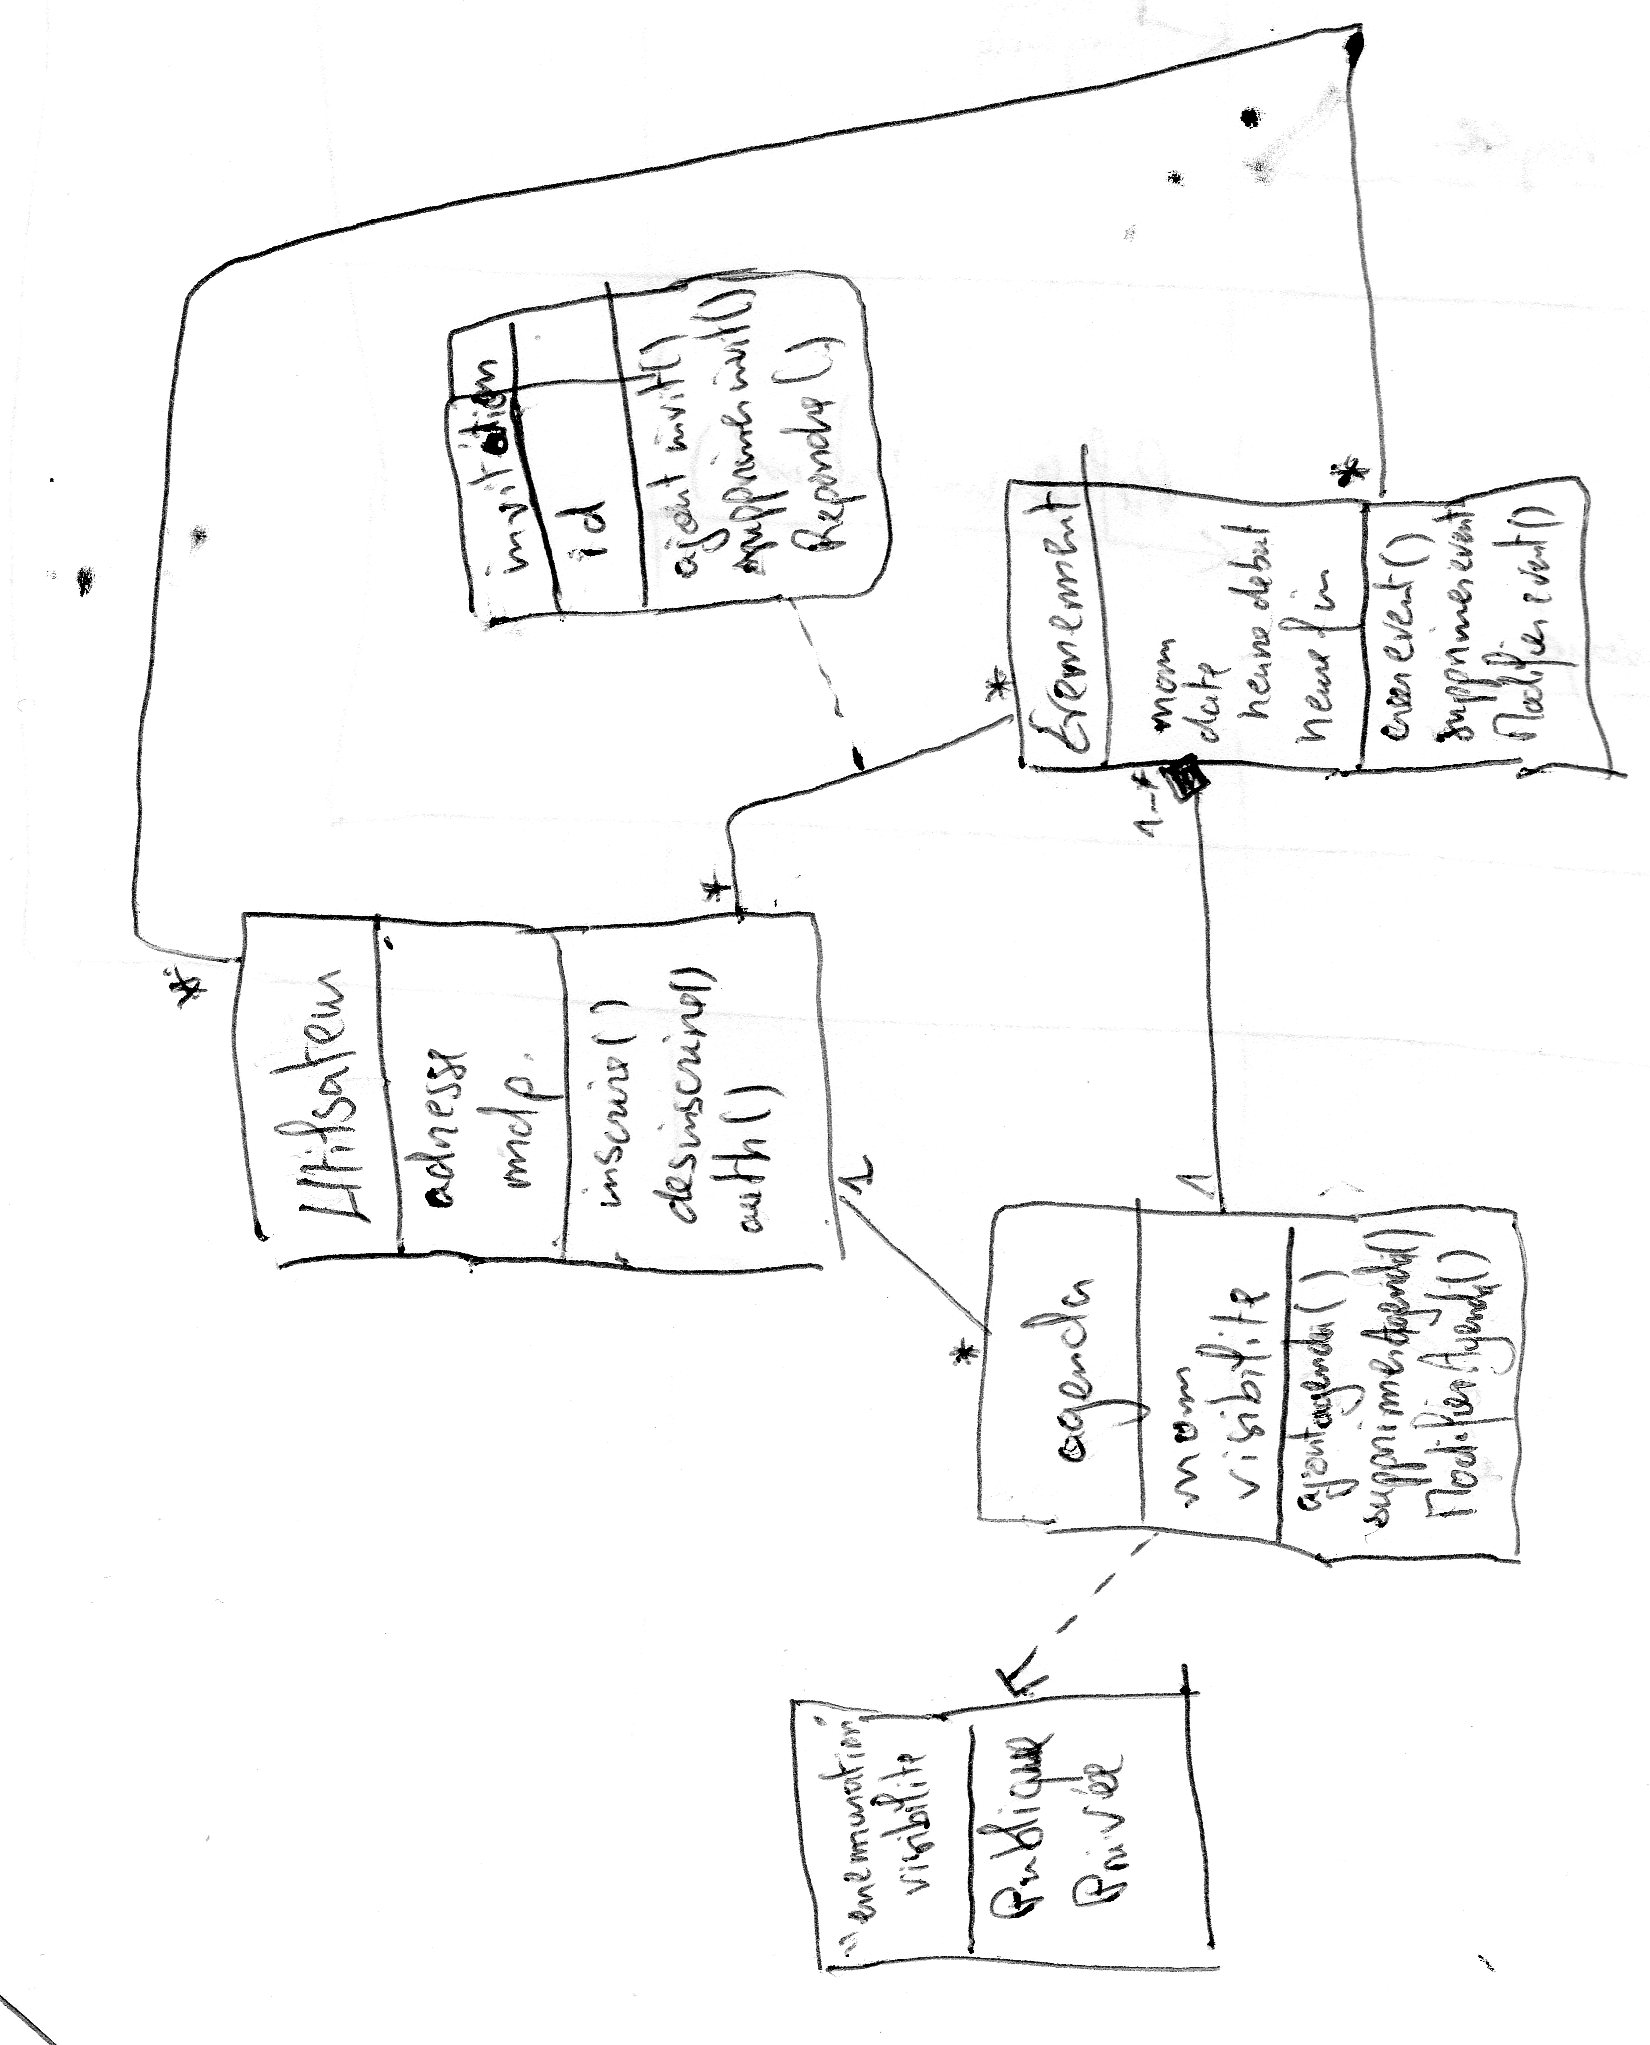 *
Utilsateur
adresse
mdp.
inscrire()
desinscrire()
auth()
*
1
invitation
id
ajout invit()
supprimer invit()
Repondre()
"enemuration"
visibilite
Publique
Privée
*
agenda
nom
visibilite
ajoutagenda()
supprimerAgenda()
ModifierAgenda()
1
1-*
*
Evenement
nom
date
heure debut
heure fin
*
creer event()
supprimer event
Modifier event()